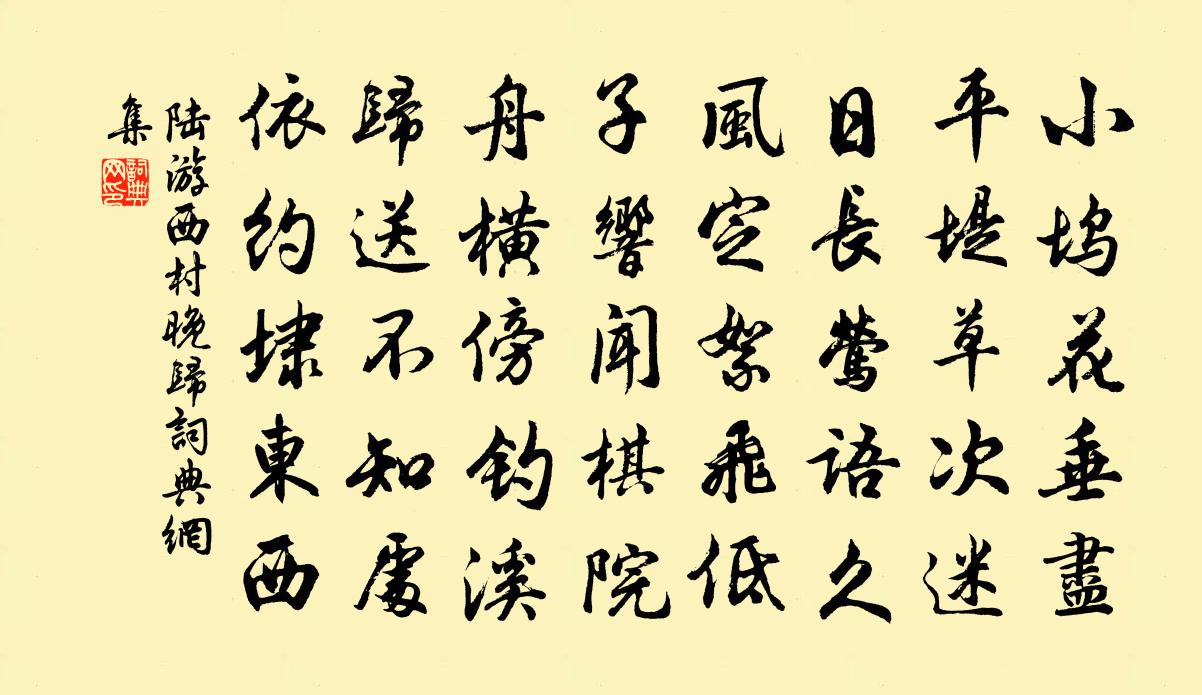 小坞花垂盡
平堤草次迷
日長鶯語久
風定絮飛低
子響聞棋院
舟橫傍釣溪
歸送不知處
依約埭東西
陆游西村晚歸詞典網
集
詞典
网印